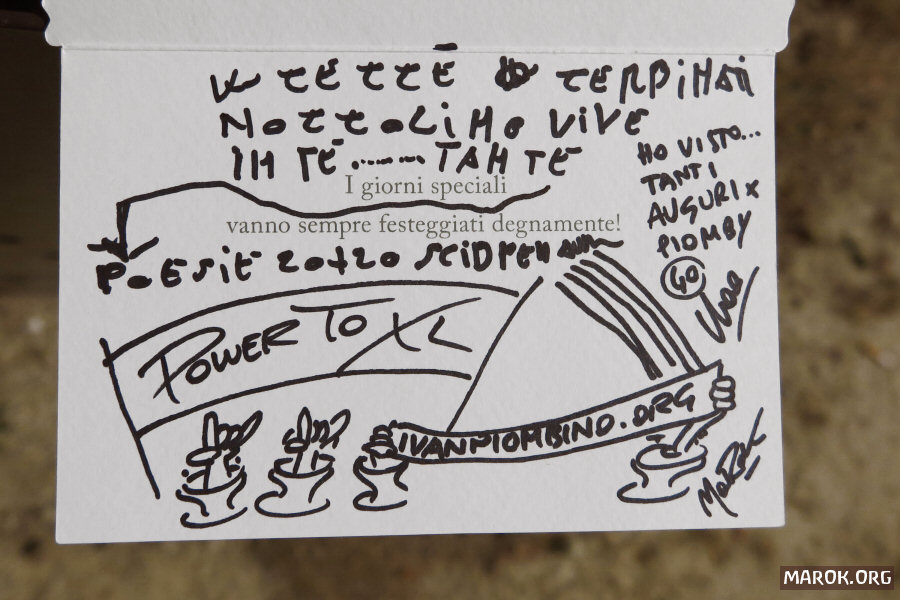 TETTE
NOTTOLINO VIVE
IN TE ...... TANTE
I giorni speciali
vanno sempre festeggiati degnamente!
POESIE 20+20
HO VISTO...
TANTI
AUGURI X
PIOMBY
40
POWER TO XL
IVANPIOMBINO.ORG
MAROK
MAROK.ORG